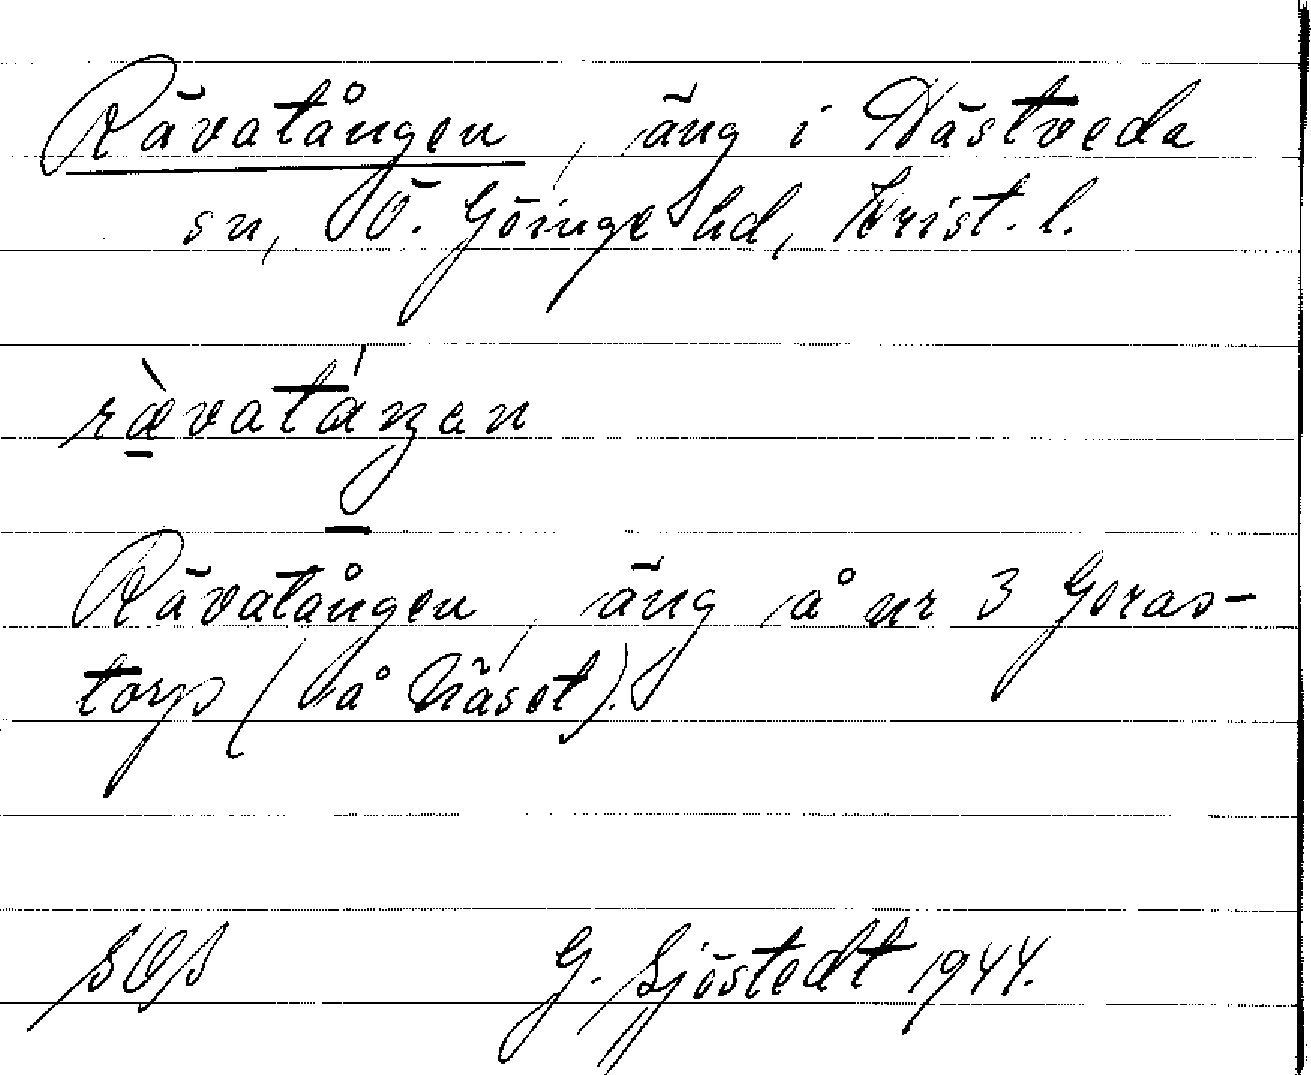 Rävatången, äng i Hästveda
sn, Ö. Göinge hd, Krist. l.
ræ̀vatáŋen
Rävatången, äng å nr 3 Geras-
torp (å Näset).
SOS G. Sjöstedt 1944.